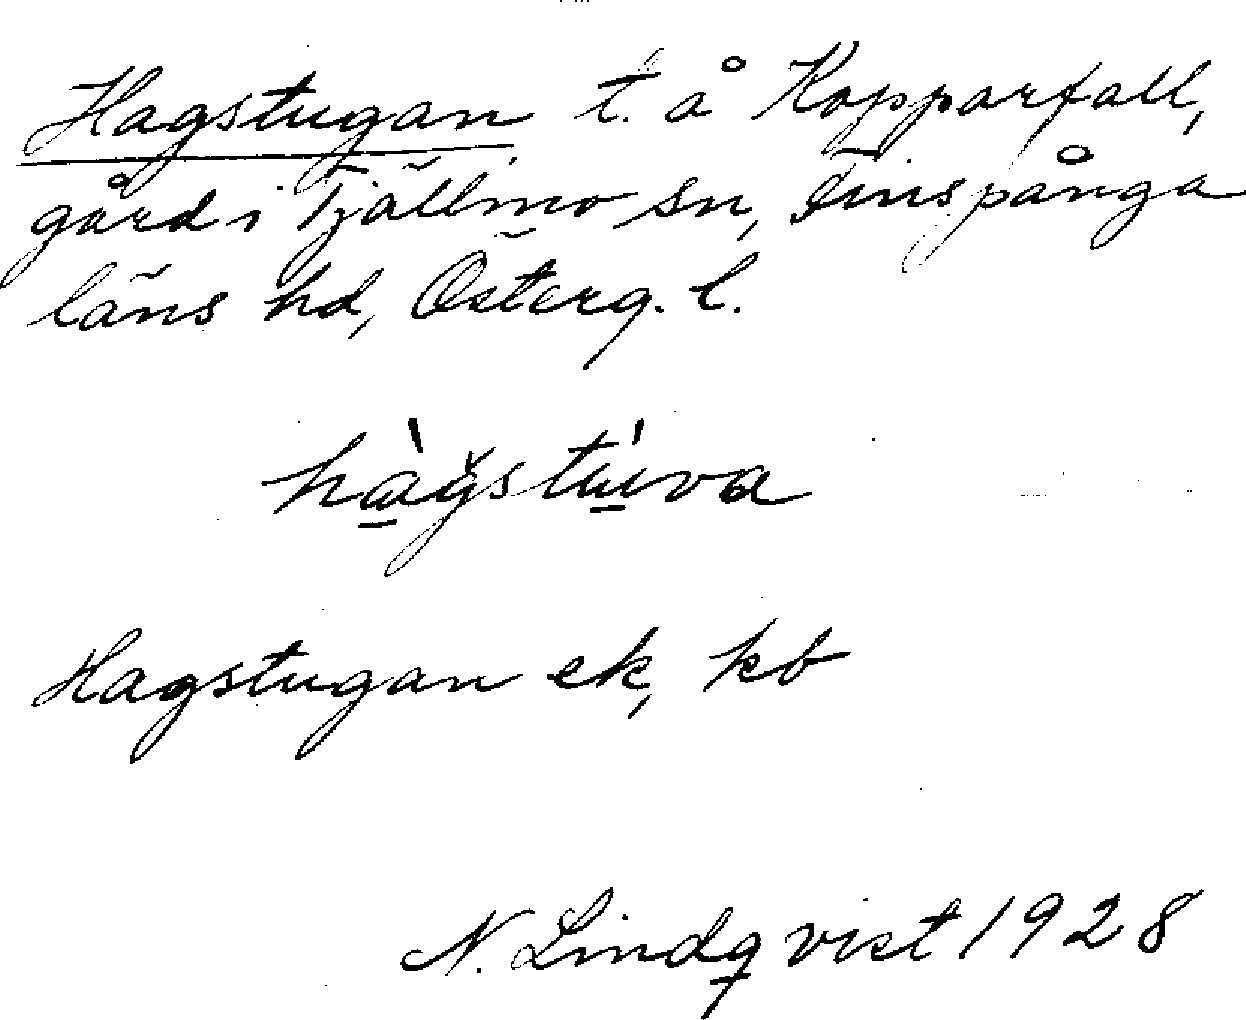 Hagstugan t. å Kopparfall,
gård i Tjällmo sn, Finspånga
läns hd, Österg. l.
hàgstúva
Hagstugan ek, kb
N. Lindqvist 1928